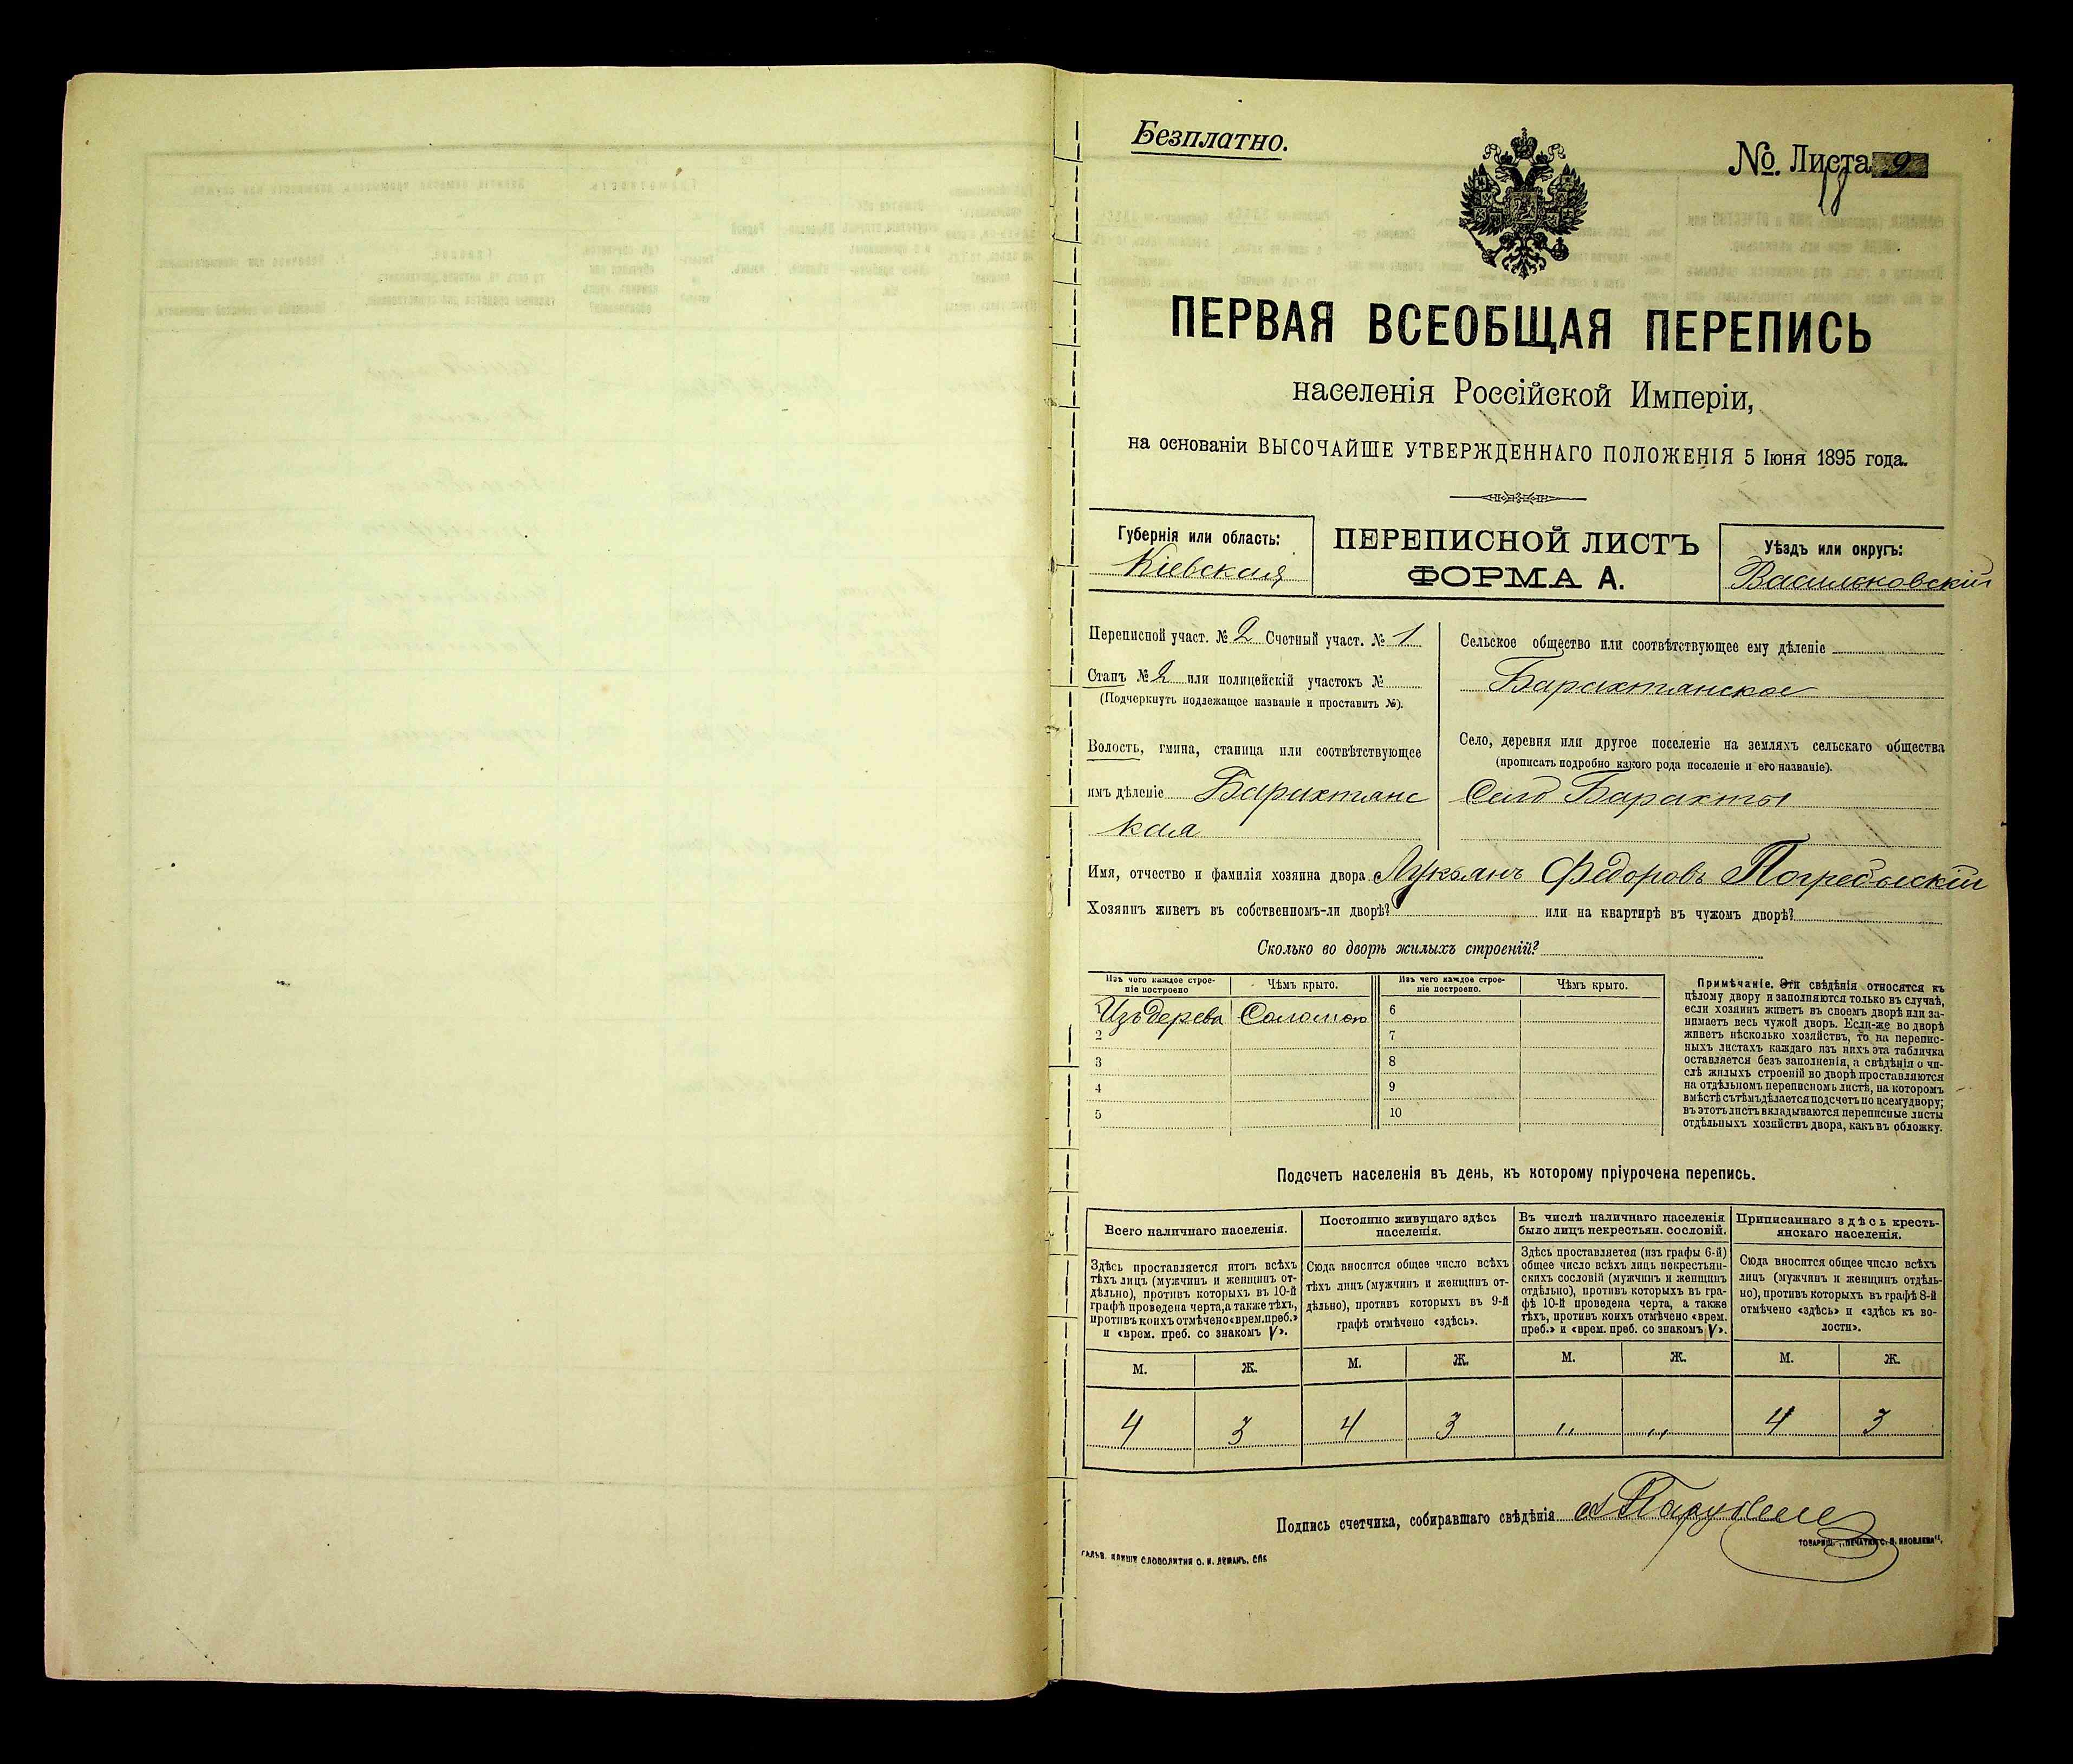 Безплатно.
№. Листа 9
18
ПЕРВАЯ ВСЕОБЩАЯ ПЕРЕПИСЬ
населенія Россійской Имперіи,
на основаніи ВЫСОЧАЙШЕ УТВЕРЖДЕННАГО ПОЛОЖЕНІЯ 5 Іюня 1895 года.
Губернія или область:
Кіевская
ПЕРЕПИСНОЙ ЛИСТЪ
ФОРМА А.
Уѣздъ или округъ:
Васильковскій
Переписной участ. № 2 Счетный участ. № 1
Станъ № 2 или полицейскій участокъ №
(Подчеркнуть подлежащее названіе и проставить №).
Волость, гмина, станица или соотвѣтствующее
имъ дѣленіе Барахтянс
кая
Сельское общество или соотвѣтствующее ему дѣленіе
Барахтянское
Село, деревня или другое поселеніе на земляхъ сельскаго общества
(прописать подробно какого рода поселеніе и его названіе).
Село Барахты
Имя, отчество и фамилія хозяина двора Лукьянъ Федоровъ Погребыскій
Хозяинъ живетъ въ собственномъ-ли дворѣ? или на квартирѣ въ чужомъ дворѣ?
Сколько во дворѣ жилыхъ строеній?
Изъ чего каждое строе-
ніе построено
Чѣмъ крыто.
Изъ чего каждое строе-
ніе построено.
Чѣмъ крыто.
Изъ дерева Соломою 6
2 7
3 8
4 9
5 10
Примѣчаніе. Эти свѣдѣнія относятся къ
цѣлому двору и заполняются только въ случаѣ,
если хозяинъ живетъ въ своемъ дворѣ или за-
нимаетъ весь чужой дворъ. Если-же во дворѣ
живетъ нѣсколько хозяйствъ, то на перепис-
ныхъ листахъ каждаго изъ нихъ эта табличка
оставляется безъ заполненія, а свѣдѣнія о чи-
слѣ жилыхъ строеній во дворѣ проставляются
на отдѣльномъ переписномъ листѣ, на которомъ
вмѣстѣ съ тѣмъ дѣлается подсчетъ по всему двору;
въ этотъ листъ вкладываются переписные листы
отдѣльныхъ хозяйствъ двора, какъ въ обложку.
Подсчетъ населенія въ день, къ которому пріурочена перепись.
Всего наличнаго населенія.
Здѣсь проставляется итогъ всѣхъ
тѣхъ лицъ (мужчинъ и женщинъ от-
дѣльно), противъ которыхъ въ 10-й
графѣ проведена черта, а также тѣхъ,
противъ коихъ отмѣчено «врем. преб.»
и «врем. преб. со знакомъ V».
Постоянно живущаго здѣсь
населенія.
Сюда вносится общее число всѣхъ
тѣхъ лицъ (мужчинъ и женщинъ от-
дѣльно), противъ которыхъ въ 9-й
графѣ отмѣчено «здѣсь».
Въ числѣ наличнаго населенія
было лицъ некрестьян. сословій.
Здѣсь проставляется (изъ графы 6-й)
общее число всѣхъ лицъ некрестьян-
скихъ сословій (мужчинъ и женщинъ
отдѣльно), противъ которыхъ въ гра-
фѣ 10-й проведена черта, а также
тѣхъ, противъ коихъ отмѣчено «врем.
преб.» и «врем. преб. со знакомъ V».
Приписаннаго здѣсь кресть-
янскаго населенія.
Сюда вносится общее число всѣхъ
лицъ (мужчинъ и женщинъ отдѣль-
но), противъ которыхъ въ графѣ 8-й
отмѣчено «здѣсь» и «здѣсь къ во-
лости».
М. Ж. М. Ж. М. Ж. М. Ж.
4 3 4 3 „ „ 4 3
Подпись счетчика, собиравшаго свѣдѣнія
ГАЛЬВ. КЛИШЕ СЛОВОЛИТНИ О. И. ЛЕМАНЪ, СПБ
ТОВАРИЩ. „ПЕЧАТНЯ С. П. ЯКОВЛЕВА“.